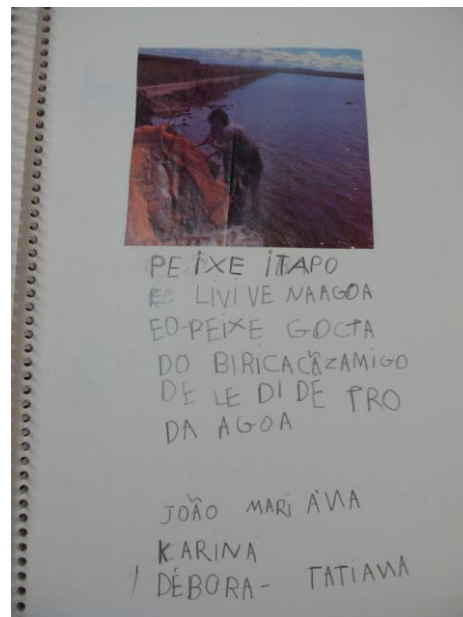 PEIXE ITAPO
E LIVIVE NAAGOA
EO-PEIXE GOCTA
DO BIRICACÃZAMIGO
DE LE DI DE TRO
DA AGOA
JOÃO MARIÀNA
KARINA
DÉBORA- TATIANA